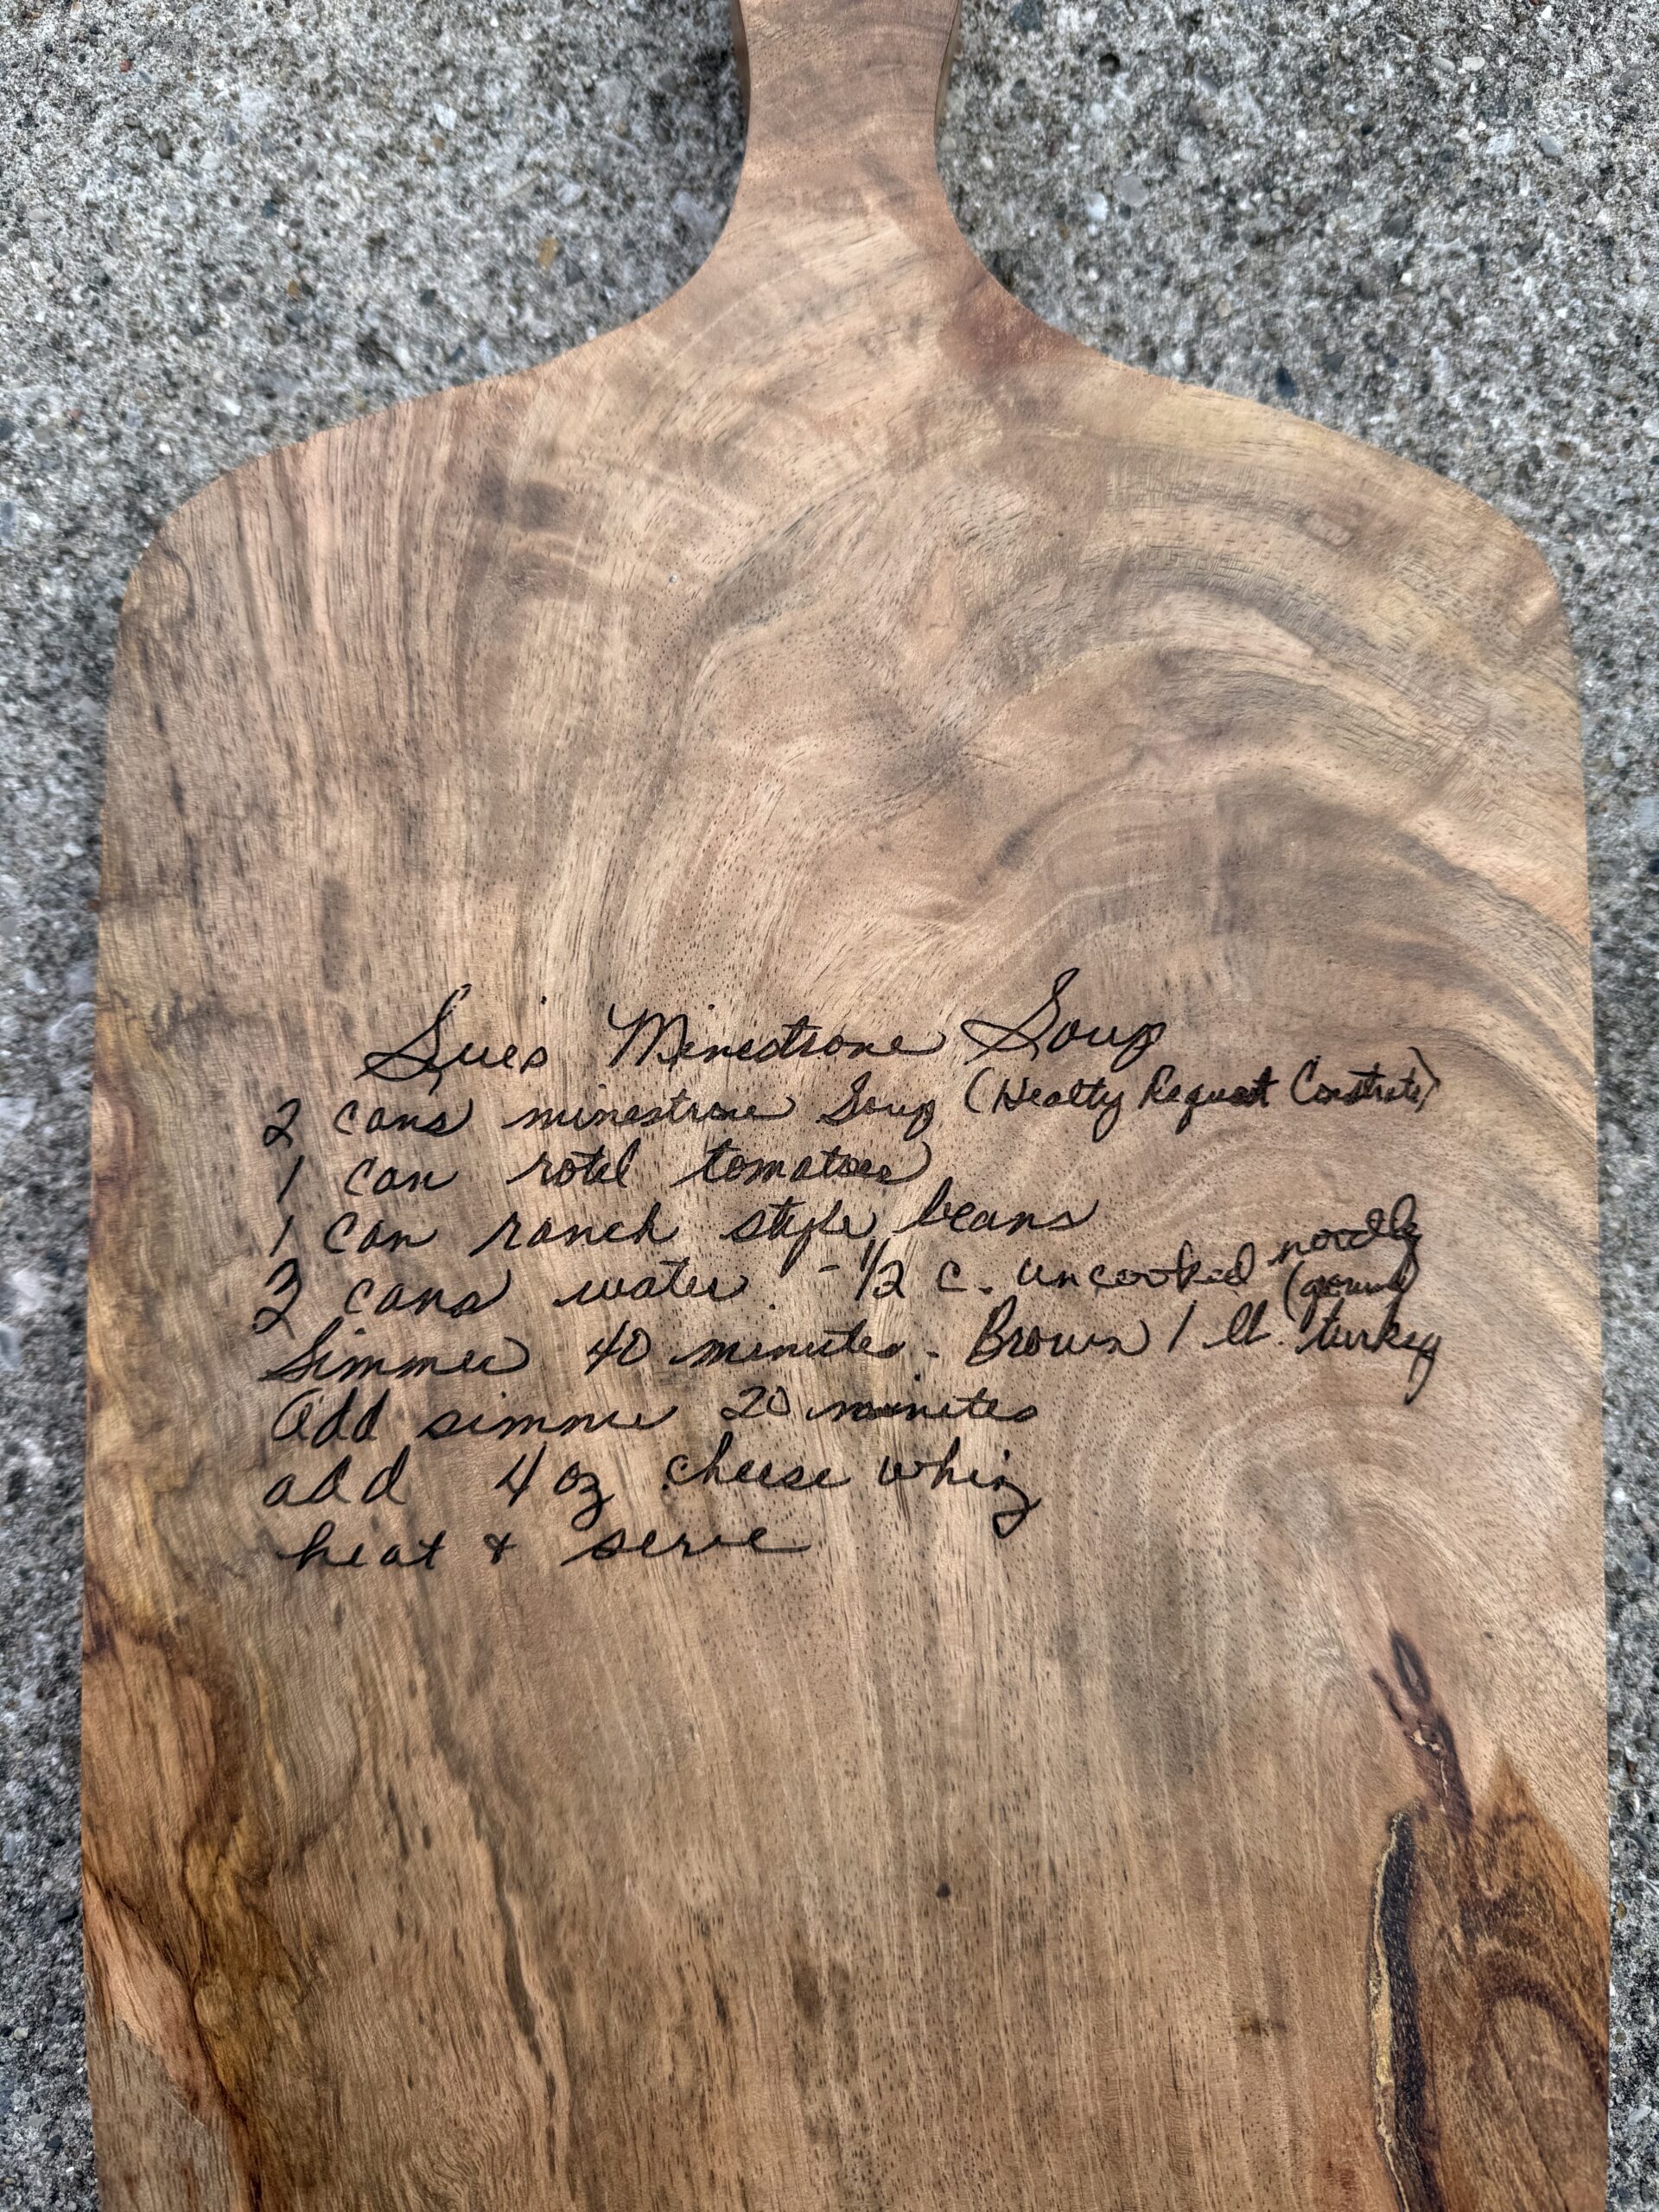 Sue's Minestrone Soup
2 cans minestrone Soup (Healty Request Constrate)
1 can rotel tomatoes
1 can ranch style beans
3 cans water - 1/2 c. uncooked noodle
Simmer 40 minutes - Brown 1 lb. (ground) turkey
Add simmer 20 minutes
add 4 oz cheese whiz
heat & serve